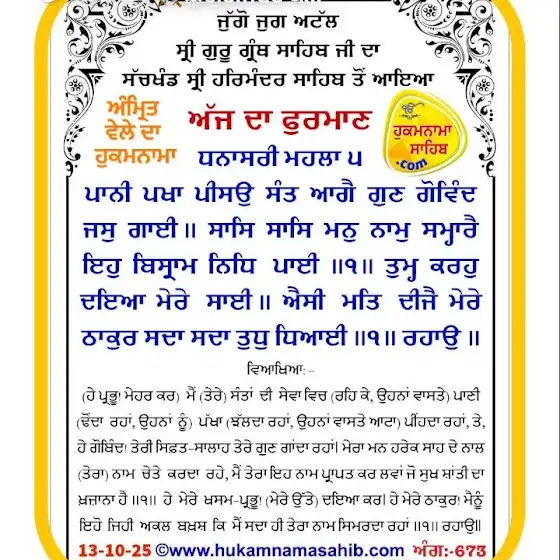 ਜੁੱਗੋ ਜੁਗ ਅਟੱਲ
ਸ੍ਰੀ ਗੁਰੂ ਗ੍ਰੰਥ ਸਾਹਿਬ ਜੀ ਦਾ
ਸੱਚਖੰਡ ਸ੍ਰੀ ਹਰਿਮੰਦਰ ਸਾਹਿਬ ਤੋਂ ਆਇਆ
ਅੰਮ੍ਰਿਤ
ਵੇਲੇ ਦਾ
ਹੁਕਮਨਾਮਾ
ਅੱਜ ਦਾ ਫੁਰਮਾਣ
ੴ
ਹੁਕਮਨਾਮਾ
ਸਾਹਿਬ
.com
ਧਨਾਸਰੀ ਮਹਲਾ ੫
ਪਾਨੀ ਪਖਾ ਪੀਸਉ ਸੰਤ ਆਗੈ ਗੁਣ ਗੋਵਿੰਦ
ਜਸੁ ਗਾਈ॥ ਸਾਸਿ ਸਾਸਿ ਮਨੁ ਨਾਮੁ ਸਮ੍ਹਾਰੈ
ਇਹੁ ਬਿਸ੍ਰਾਮ ਨਿਧਿ ਪਾਈ ॥੧॥ ਤੁਮ੍ਹ ਕਰਹੁ
ਦਇਆ ਮੇਰੇ ਸਾਈ॥ ਐਸੀ ਮਤਿ ਦੀਜੈ ਮੇਰੇ
ਠਾਕੁਰ ਸਦਾ ਸਦਾ ਤੁਧੁ ਧਿਆਈ ॥੧॥ ਰਹਾਉ ॥
ਵਿਆਖਿਆ: –
(ਹੇ ਪ੍ਰਭੂ! ਮੇਹਰ ਕਰ) ਮੈਂ (ਤੇਰੇ) ਸੰਤਾਂ ਦੀ ਸੇਵਾ ਵਿਚ (ਰਹਿ ਕੇ, ਉਹਨਾਂ ਵਾਸਤੇ) ਪਾਣੀ
(ਢੋਂਦਾ ਰਹਾਂ, ਉਹਨਾਂ ਨੂੰ) ਪੱਖਾ (ਝੱਲਦਾ ਰਹਾਂ, ਉਹਨਾਂ ਵਾਸਤੇ ਆਟਾ) ਪੀਂਹਦਾ ਰਹਾਂ, ਤੇ,
ਹੇ ਗੋਬਿੰਦ! ਤੇਰੀ ਸਿਫ਼ਤ-ਸਾਲਾਹ ਤੇਰੇ ਗੁਣ ਗਾਂਦਾ ਰਹਾਂ। ਮੇਰਾ ਮਨ ਹਰੇਕ ਸਾਹ ਦੇ ਨਾਲ
(ਤੇਰਾ) ਨਾਮ ਚੇਤੇ ਕਰਦਾ ਰਹੇ, ਮੈਂ ਤੇਰਾ ਇਹ ਨਾਮ ਪ੍ਰਾਪਤ ਕਰ ਲਵਾਂ ਜੋ ਸੁਖ ਸ਼ਾਂਤੀ ਦਾ
ਖ਼ਜ਼ਾਨਾ ਹੈ ॥੧॥ ਹੇ ਮੇਰੇ ਖਸਮ-ਪ੍ਰਭੂ! (ਮੇਰੇ ਉੱਤੇ) ਦਇਆ ਕਰ। ਹੇ ਮੇਰੇ ਠਾਕੁਰ! ਮੈਨੂੰ
ਇਹੋ ਜਿਹੀ ਅਕਲ ਬਖ਼ਸ਼ ਕਿ ਮੈਂ ਸਦਾ ਹੀ ਤੇਰਾ ਨਾਮ ਸਿਮਰਦਾ ਰਹਾਂ ॥੧॥ ਰਹਾਉ॥
13-10-25 ©www.hukamnamasahib.com ਅੰਗ:-673